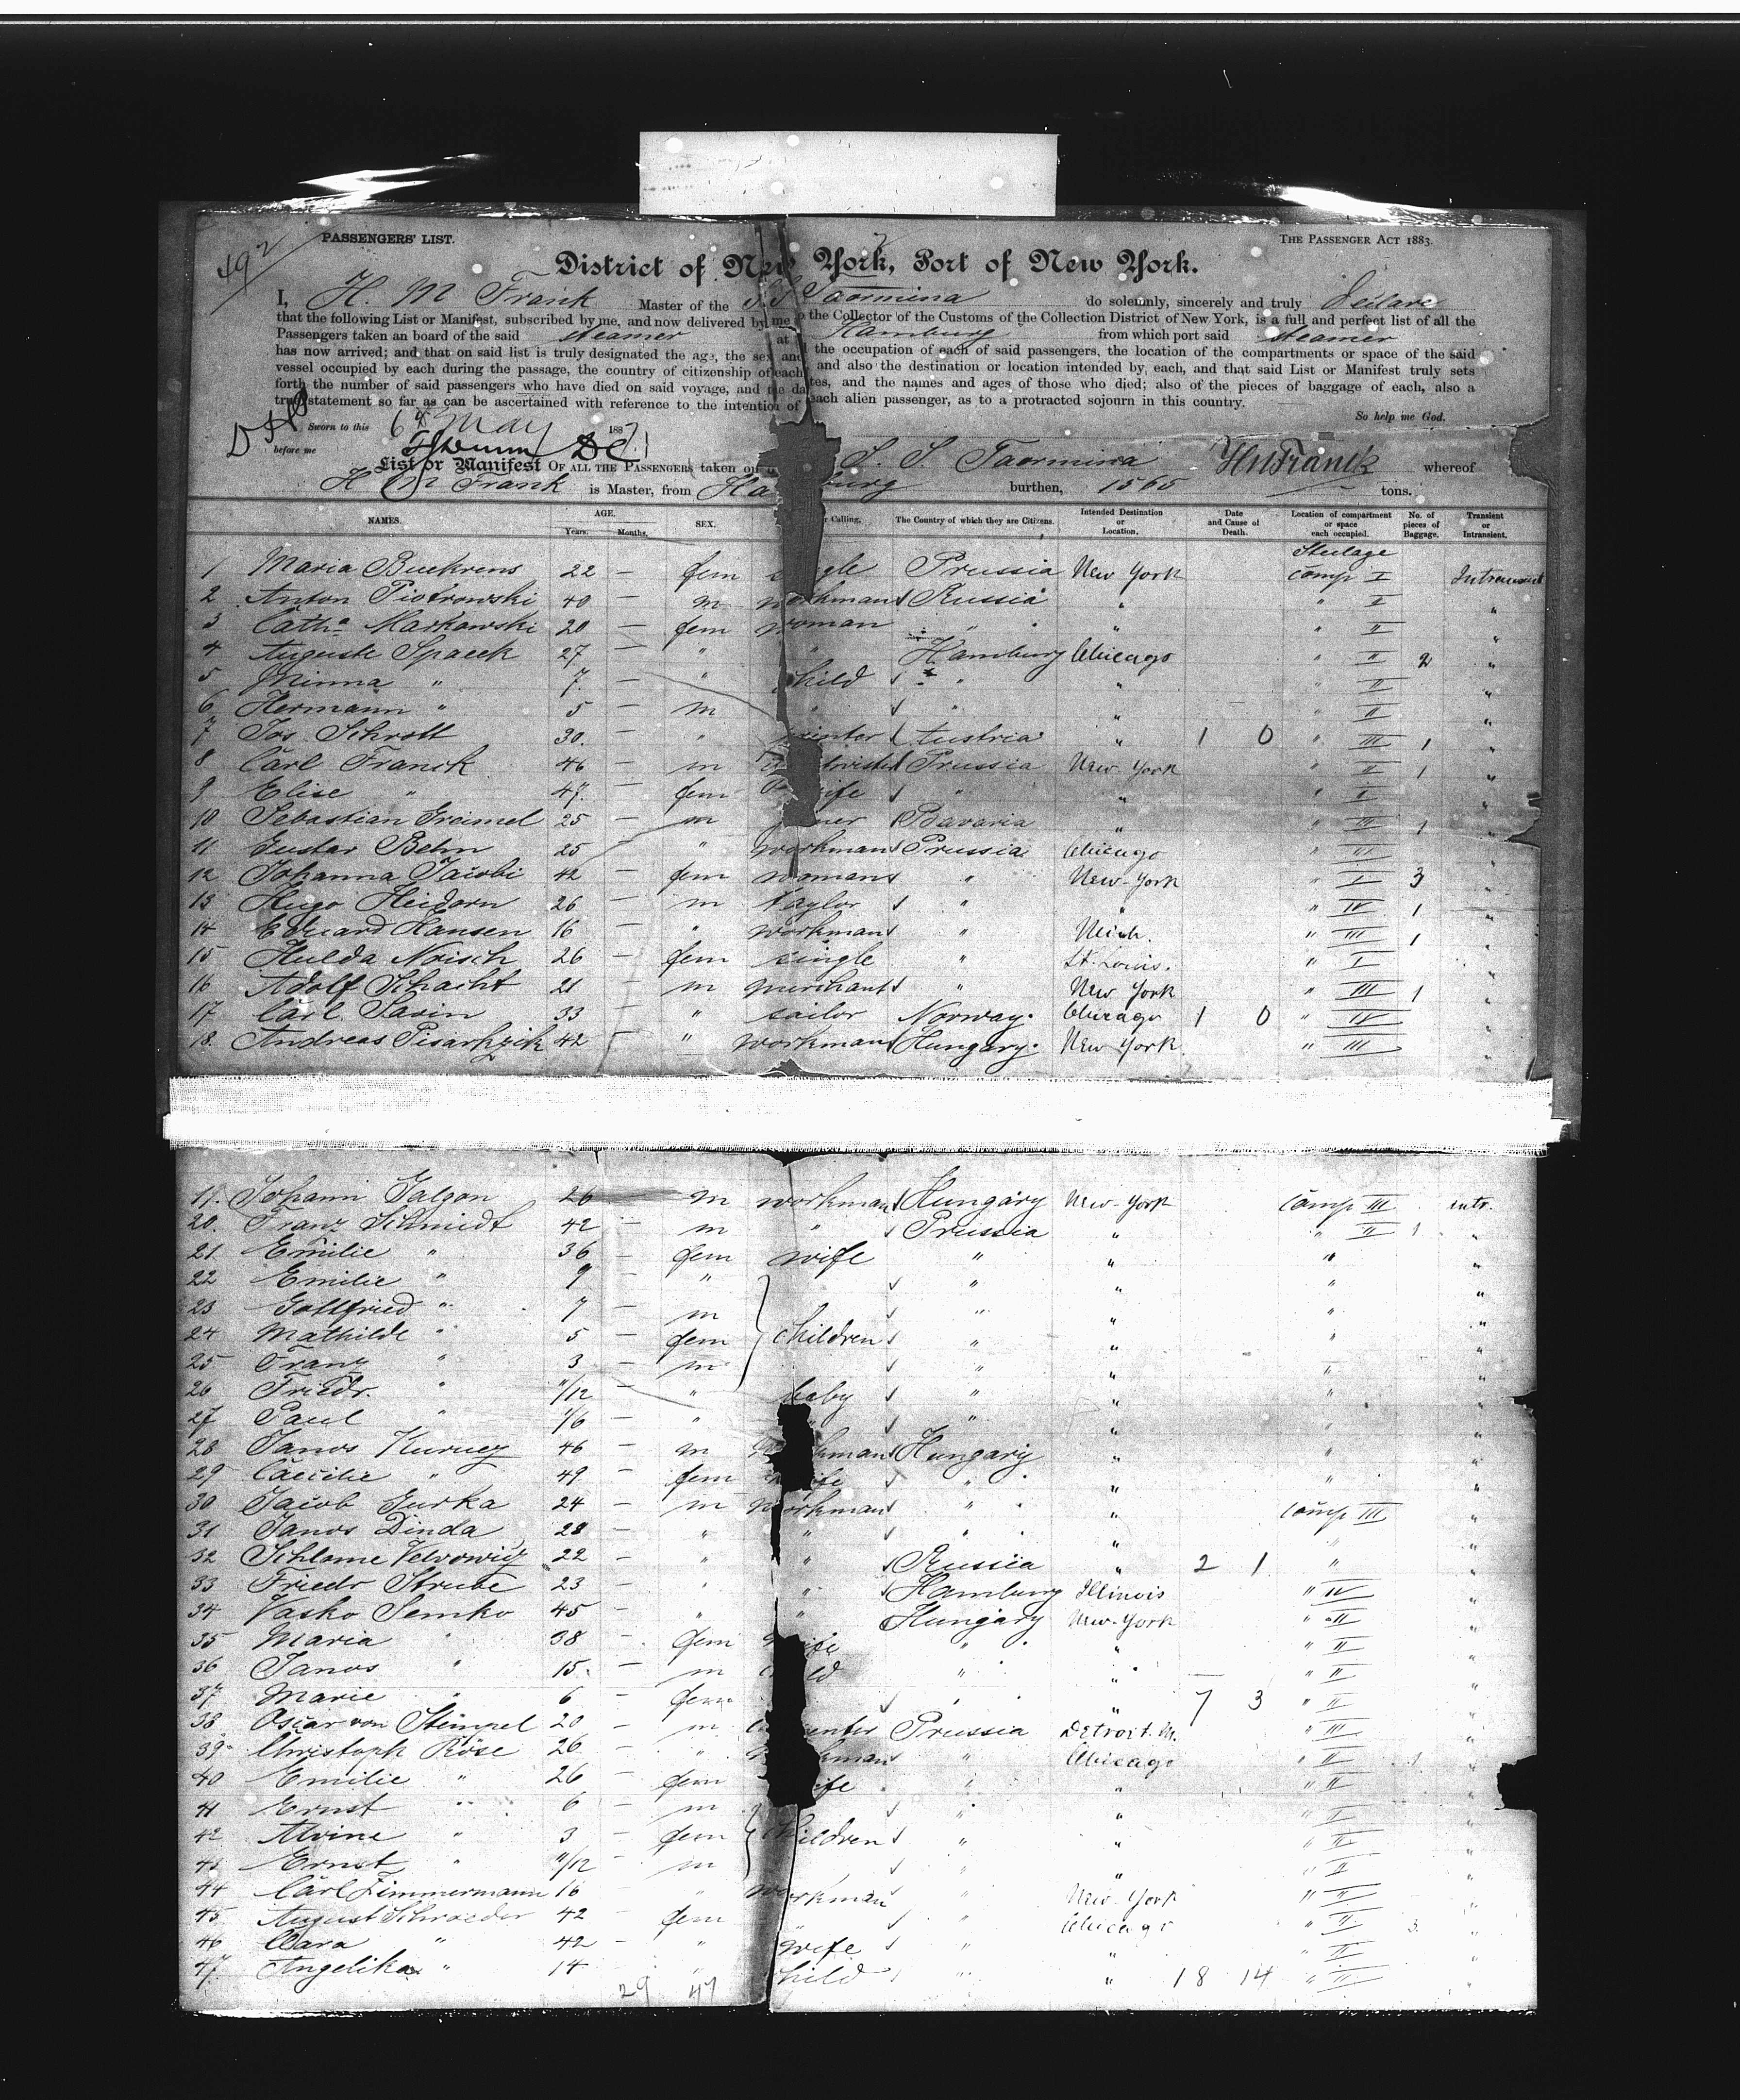 492
PASSENGERS' LIST. THE PASSENGER ACT 1883.
District of New York, Port of New York.
I, H. M Frank Master of the S.S Taormina do solemnly, sincerely and truly declare
that the following List or Manifest, subscribed by me, and now delivered by me to the Collector of the Customs of the Collection District of New York, is a full and perfect list of all the
Passengers taken an board of the said steamer at Hamburg from which port said steamer
has now arrived; and that on said list is truly designated the age, the sex and the occupation of each of said passengers, the location of the compartments or space of the said
vessel occupied by each during the passage, the country of citizenship of each, and also the destination or location intended by each, and that said List or Manifest truly sets
forth the number of said passengers who have died on said voyage, and the dates, and the names and ages of those who died; also of the pieces of baggage of each, also a
true statement so far as can be ascertained with reference to the intention of each alien passenger, as to a protracted sojourn in this country.
So help me God.
Sworn to this 6th May 1887
before me
List or Manifest OF ALL THE PASSENGERS taken on S. S. Taormina HMFranck whereof
H M Frank is Master, from Hamburg burthen, 1565 tons.
NAMES. AGE. Years. Months. SEX. Calling. The Country of which they are Citizens. Intended Destination or Location. Date and Cause of Death. Location of compartment or space each occupied. No. of pieces of Baggage. Transient or Intransient.
Steerage
1 Maria Buekrens 22 — fem single Prussia New York comp I Intransient
2 Anton Piotrowski 40 — m workman Russia " " I "
3 Catha Markowski 20 — fem woman " " " II "
4 Auguste Spaeck 27 — " " Hamburg Chicago " II 2 "
5 Minna " 7. — " child " " " II "
6 Hermann " 5 — m " " " " II "
7 Jos. Schrott 30. — " Austria " 1 0 " III 1 "
8 Carl Franck 46 — m Prussia New York " II 1 "
9 Elise " 47. — fem wife " " " I "
10 Sebastian Greimel 25 — m Bavaria " " III 1 "
11 Gustav Behn 25 — " workman Prussia Chicago " III "
12 Johanna Jacobi 42 — fem woman " New-York " I 3 "
13 Hugo Heidorn 26 — m taylor " " " IV 1 "
14 Eduard Hansen 16 — " workman " Mich. " III 1 "
15 Hulda Noisch 26 — fem single " St. Louis. " I "
16 Adolf Schacht 21 — m merchant " New York " III 1 "
17 Carl Savin 33 — " sailor Norway. Chicago 1 0 " IV "
18. Andreas Pisarkzik 42 — " workman Hungary. New York. " III
19. Johann Galgon 26 m workman Hungary New-York comp III intr.
20. Franz Schmidt 42 — m " Prussia " " II 1 "
21 Emilie " 36 — fem wife " " " "
22 Emilie " 9 — " " " " "
23 Gottfried " 7 — m " " " "
24 Mathilde " 5 — fem children " " " "
25 Franz " 3 — m " " " "
26 Friedr. " 11/12 — " baby " " " "
27 Paul " 1/6 — " " " " "
28 Janos Kurucz 46 — m workman Hungary " " "
29 Caecilie " 49. — fem wife " " " "
30 Jacob Gurka 24 — m workman " " comp III "
31 Janos Dinda 28 — " " " " " "
32 Schlome Velvowicz 22 — " " Russia " 2 1 " "
33 Friedr Strube 23 — " " Hamburg Illinois " IV "
34 Vasko Semko 45 — " " Hungary New-York " II "
35 Maria " 38 — fem wife " " " II "
36 Janos " 15. — m child " " " II "
37 Marie " 6 — fem " " 7 3 " II "
38 Oscar von Stempel 20 — m carpenter Prussia Detroit. M. " III "
39 Christoph Röse 26 — " workman " Chicago " II 1 "
40 Emilie " 26 — fem wife " " " II "
41 Ernst " 6 — m " " " I "
42 Alvine " 3 — fem children " " " II "
43 Ernst " 11/12 — m " " " II "
44 Carl Zimmermann 16 — " workman " New-York " II "
45 August Schroeder 42 — fem " " Chicago " II 3 "
46 Clara " 42 — " wife " " " II "
47. Angelika " 14 " child " " 18 14 " II "
29 47